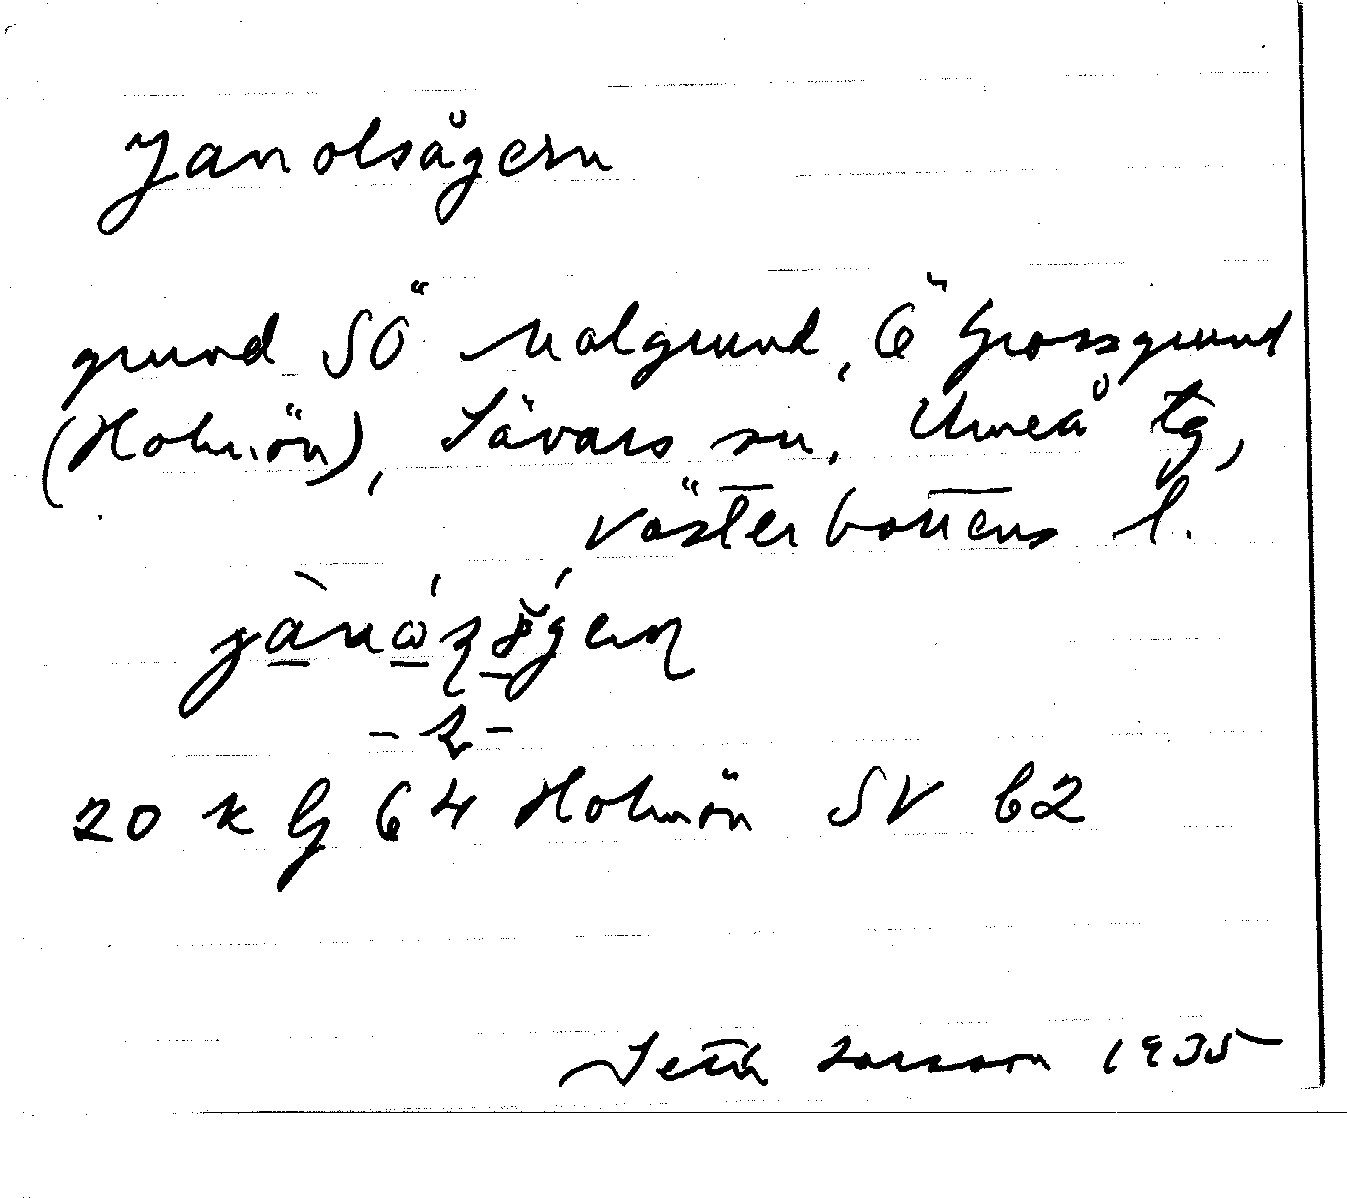 Janolsågern
grund SÖ Malgrund, Ö Grossgrund
(Holmön), Sävars sn, Umeå tg,
Västerbottens l.
20 K G 64 Holmön SV b2
Seth Larsson 1935